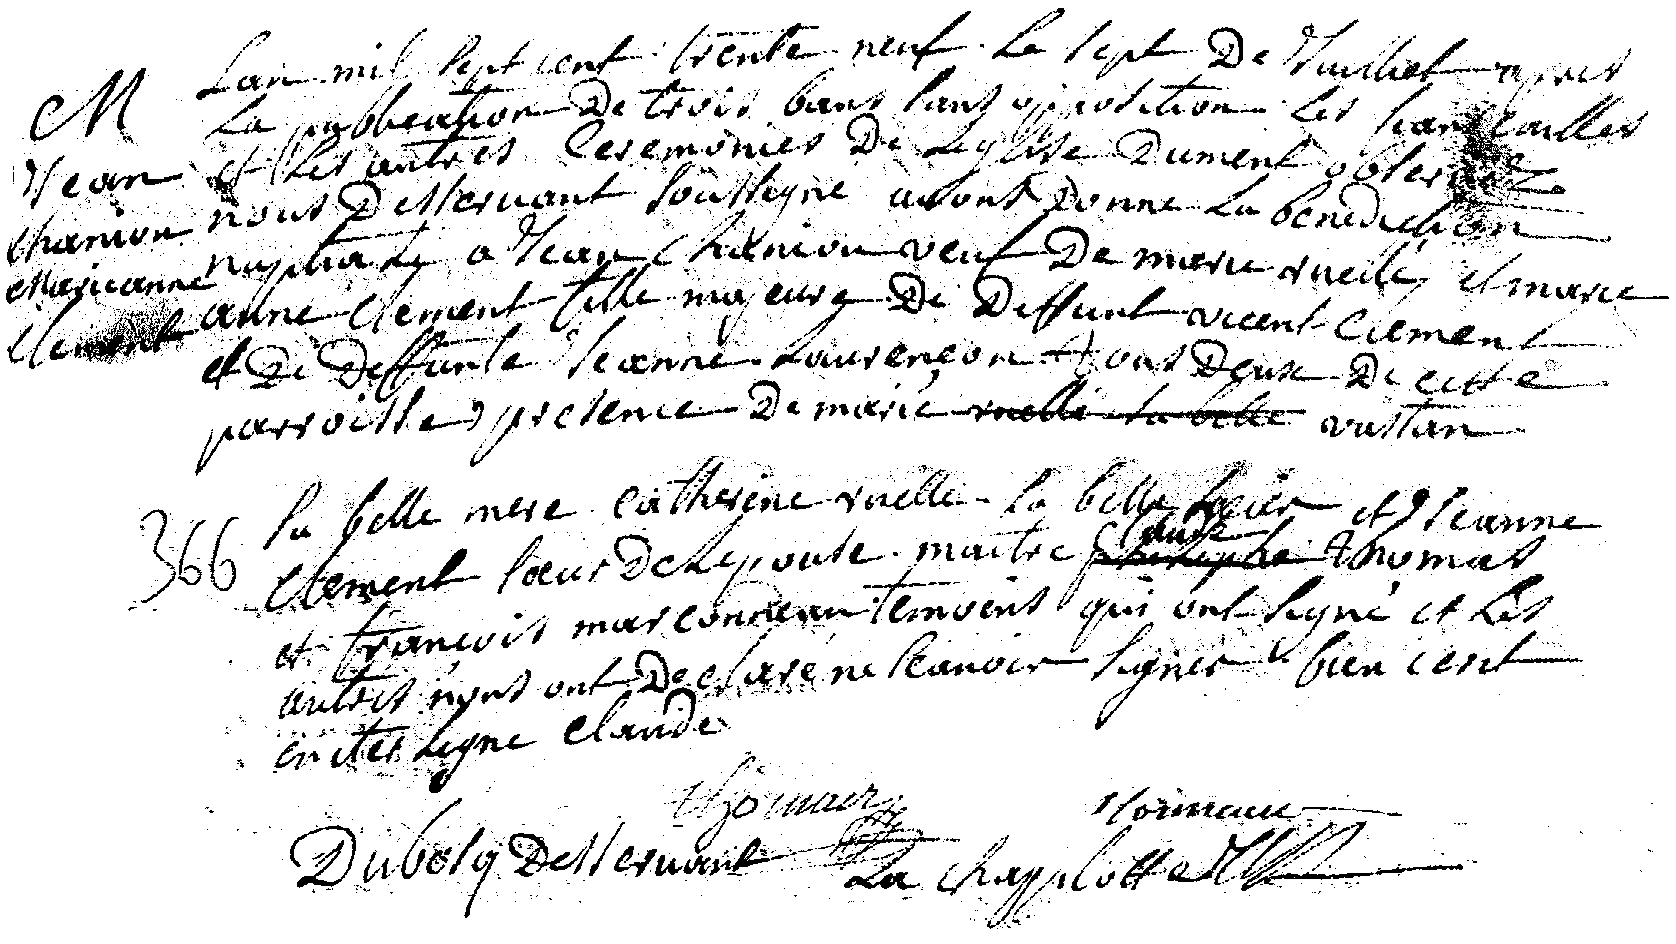 M
Jean
Chanion
Marieanne
Clement
Lan mil sept cent trente neuf le sept De Juilliet apres
La publication De trois bans sans opposition les fiansailles
et les autres Ceremonies De Leglise Dument observez
nous Desservant soussigné avons Donne La benediction
nuptiale a Jean Chaniou veuf De marie ruelle, et marie
anne Clement fille majeure De Deffunt vicent Clement
et De Deffunte Jeanne Laurençon tous Deux De cette
parroisse presence De marie ruelle sa belle vastan
366
sa belle mere Catherine ruelle la belle soeur et Jeanne
Clement soeur De Lepouse maitre Claude thomas
et françois marconneau temoins qui ont signé et Les
autres nous ont Declaré ne scavoir signer bien cest
en ites ligne Claude
thomas
Duboscq Desservant
La chapplotte